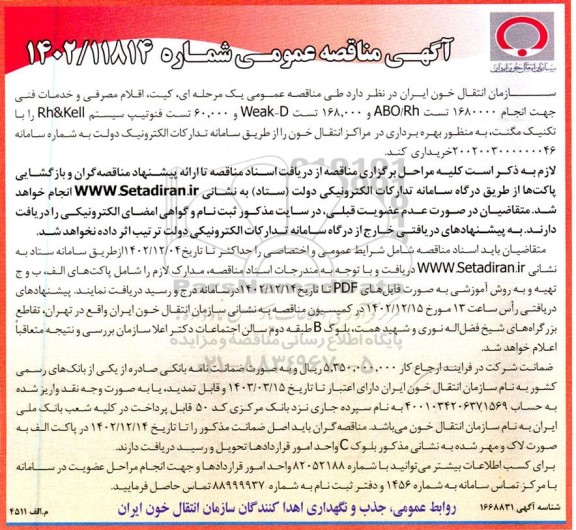 آگهی مناقصه عمومی شماره ۱۴۰۲/۱۱۸۱۴
سازمان انتقال خون ایران
سازمان انتقال خون ایران در نظر دارد طی مناقصه عمومی یک مرحله ای، کیت، اقلام مصرفی و خدمات فنی
جهت انجام ۱۶۸۰۰۰۰ تست ABO/Rh و ۱۶۸,۰۰۰ تست Weak-D و ۶۰,۰۰۰ تست فنوتیپ سیستم Rh&Kell را با
تکنیک مگنت، به منظور بهره برداری در مراکز انتقال خون را از طریق سامانه تدارکات الکترونیک دولت به شماره سامانه
خریداری کند.
لازم به ذکر است کلیه مراحل برگزاری مناقصه از دریافت اسناد مناقصه تا ارائه پیشنهاد مناقصه گران و بازگشایی
پاکت‌ها از طریق درگاه سامانه تدارکات الکترونیکی دولت (ستاد) به نشانی WWW.Setadiran.ir انجام خواهد
شد. متقاضیان در صورت عدم عضویت قبلی، در سایت مذکور ثبت نام و گواهی امضای الکترونیکی را دریافت
دارند. به پیشنهادهای دریافتی خارج از درگاه سامانه تدارکات الکترونیکی دولت ترتیب اثر داده نخواهد شد.
متقاضیان باید اسناد مناقصه شامل شرایط عمومی و اختصاصی را حداکثر تا تاریخ ۱۴۰۲/۱۲/۰۴ از طریق سامانه ستاد به
نشانی WWW.Setadiran.ir دریافت و با توجه به مندرجات اسناد مناقصه، مدارک لازم را شامل پاکت‌های الف، ب و ج
تهیه و به روش آموزشی به صورت فایل‌های PDF تا تاریخ ۱۴۰۲/۱۲/۱۴ در سامانه درج و رسید دریافت نمایند. پیشنهادهای
دریافتی رأس ساعت ۱۳ مورخ ۱۴۰۲/۱۲/۱۵ در کمیسیون مناقصه به نشانی سازمان انتقال خون ایران واقع در تهران، تقاطع
بزرگراه‌های شیخ فضل‌اله نوری و شهید همت، بلوک B طبقه دوم سالن اجتماعات دکتر اعلا سازمان بررسی و نتیجه متعاقباً
اعلام خواهد شد.
ضمانت شرکت در فرایند ارجاع کار ۵.۳۵۰.۰۰۰.۰۰۰ ریال و به صورت ضمانت نامه بانکی صادره از یکی از بانک‌های رسمی
کشور به نام سازمان انتقال خون ایران دارای اعتبار تا تاریخ ۱۴۰۳/۰۳/۱۵ و قابل تمدید، یا به صورت وجه نقد واریز شده
به حساب ۴۰۰۱۰۳۴۲۰۶۳۷۱۵۶۹ به نام سپرده جاری نزد بانک مرکزی کد ۵۰ قابل پرداخت در کلیه شعب بانک ملی
ایران به نام سازمان انتقال خون می‌باشد. مناقصه گران باید اصل ضمانت مذکور را تا تاریخ ۱۴۰۲/۱۲/۱۴ در پاکت الف به
صورت لاک و مهر شده به نشانی مذکور بلوک C واحد امور قراردادها تحویل و رسید دریافت دارند.
برای کسب اطلاعات بیشتر می‌توانید با شماره ۸۲۰۵۲۱۸۸ واحد امور قراردادها و جهت انجام مراحل عضویت در سامانه
با مرکز تماس سامانه به شماره ۱۴۵۶ و دفتر ثبت نام به شماره ۸۸۹۹۹۹۳۷ تماس حاصل فرمایید.
شناسه آگهی ۱۶۶۸۸۳۱ روابط عمومی، جذب و نگهداری اهدا کنندگان سازمان انتقال خون ایران م.الف ۴۵۱۱